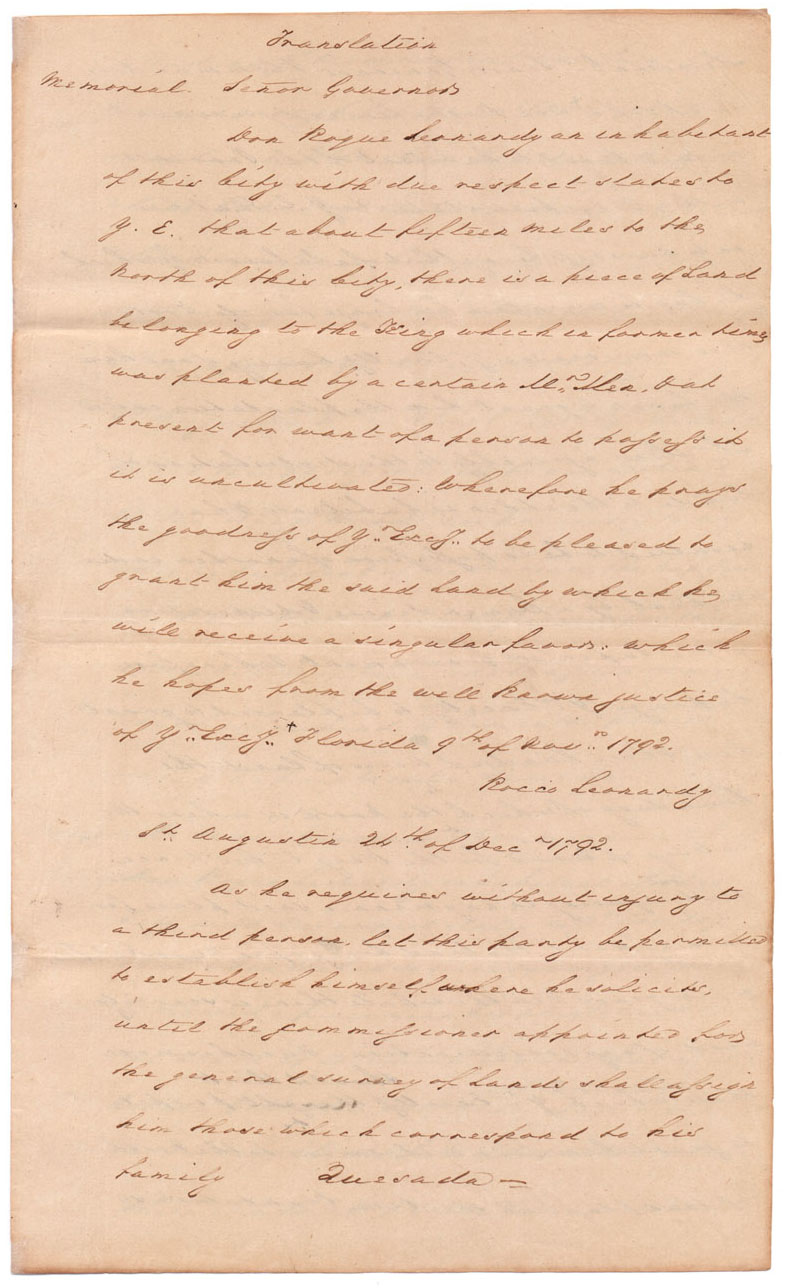 Translation
Memorial. Señor Governor
Don Roque Leonardy an inhabitant
of this City with due respect states to
Y. E. that about fifteen miles to the
North of this City, there is a piece of Land
belonging to the King which in former times
was planted by a certain Mr.
present for want of a person to possess it
it is uncultivated: Wherefore he prays
the goodness of Yr. Excy. to be pleased to
grant him the said land by which he
will receive a singular favor: which
he hopes from the well known justice
of Yr. Excy. † Florida 9th of Novr. 1792.
Rocco Leonardy
St. Augustin 24th of Decr 1792.
As he requires without injury to
a third person, let this party be permitted
to establish himself where he solicits,
until the commissioner appointed for
the general survey of Lands shall assign
him those which correspond to his
family Quesada —